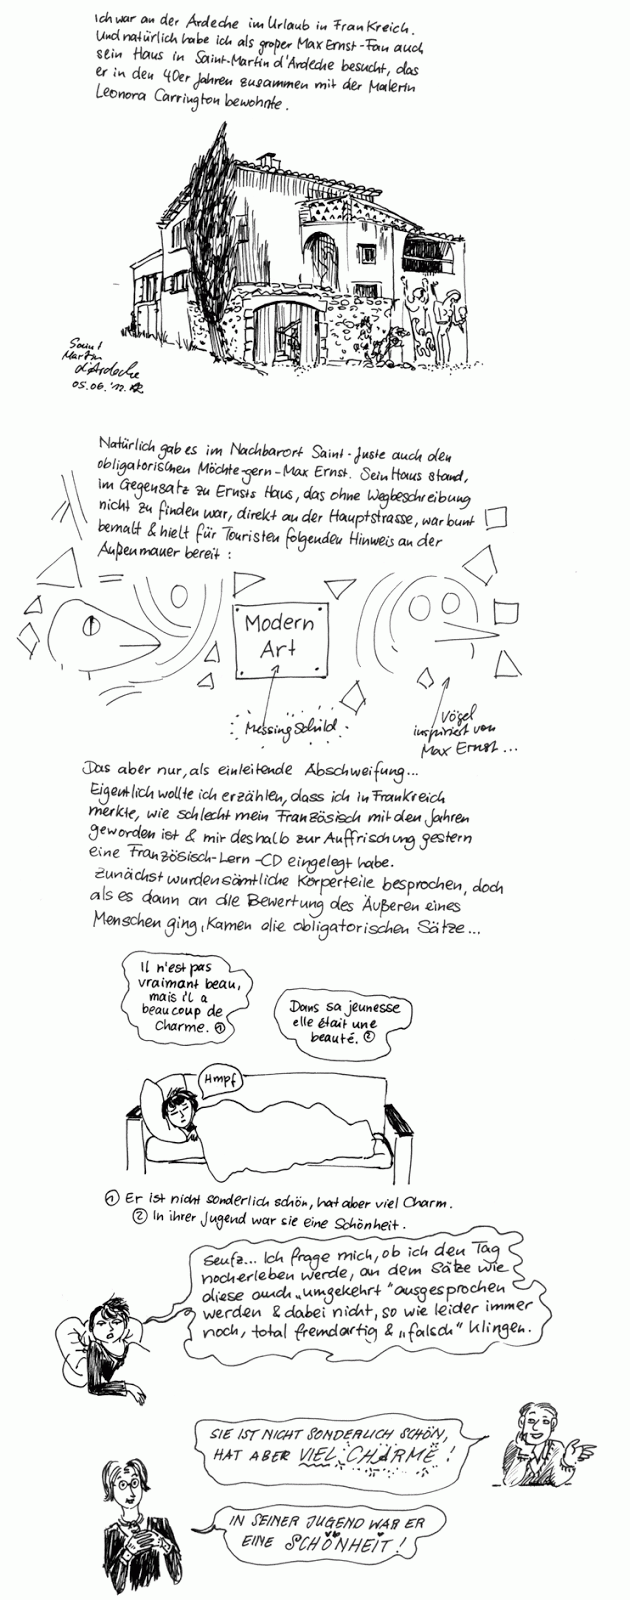 Ich war an der Ardeche im Urlaub in Frankreich.
Und natürlich habe ich als großer Max Ernst-Fan auch
sein Haus in Saint-Martin d'Ardeche besucht, das
er in den 40er Jahren zusammen mit der Malerin
Leonora Carrington bewohnte.
Saint
Martin
d'Ardeche
05.06.'12.
Natürlich gab es im Nachbarort Saint-Juste auch den
obligatorischen Möchte-gern-Max Ernst. Sein Haus stand,
im Gegensatz zu Ernsts Haus, das ohne Wegbeschreibung
nicht zu finden war, direkt an der Hauptstrasse, war bunt
bemalt & hielt für Touristen folgenden Hinweis an der
Außenmauer bereit:
Modern
Art
Messing Schild
Vögel
inspiriert von
Max Ernst...
Das aber nur, als einleitende Abschweifung...
Eigentlich wollte ich erzählen, dass ich in Frankreich
merkte, wie schlecht mein Französisch mit den Jahren
geworden ist & mir deshalb zur Auffrischung gestern
eine Französisch-Lern-CD eingelegt habe.
Zunächst wurden sämtliche Körperteile besprochen, doch
als es dann an die Bewertung des Äußeren eines
Menschen ging, kamen die obligatorischen Sätze...
Il n'est pas
vraimant beau,
mais il a
beaucoup de
Charme. ①
Dans sa jeunesse
elle était une
beauté. ②
Hmpf
① Er ist nicht sonderlich schön, hat aber viel Charm.
② In ihrer Jugend war sie eine Schönheit.
Seufz... Ich frage mich, ob ich den Tag
noch erleben werde, an dem Sätze wie
diese auch „umgekehrt" ausgesprochen
werden & dabei nicht, so wie leider immer
noch, total fremdartig & „falsch" klingen.
SIE IST NICHT SONDERLICH SCHÖN,
HAT ABER VIEL CHARME!
IN SEINER JUGEND WAR ER
EINE SCHÖNHEIT!